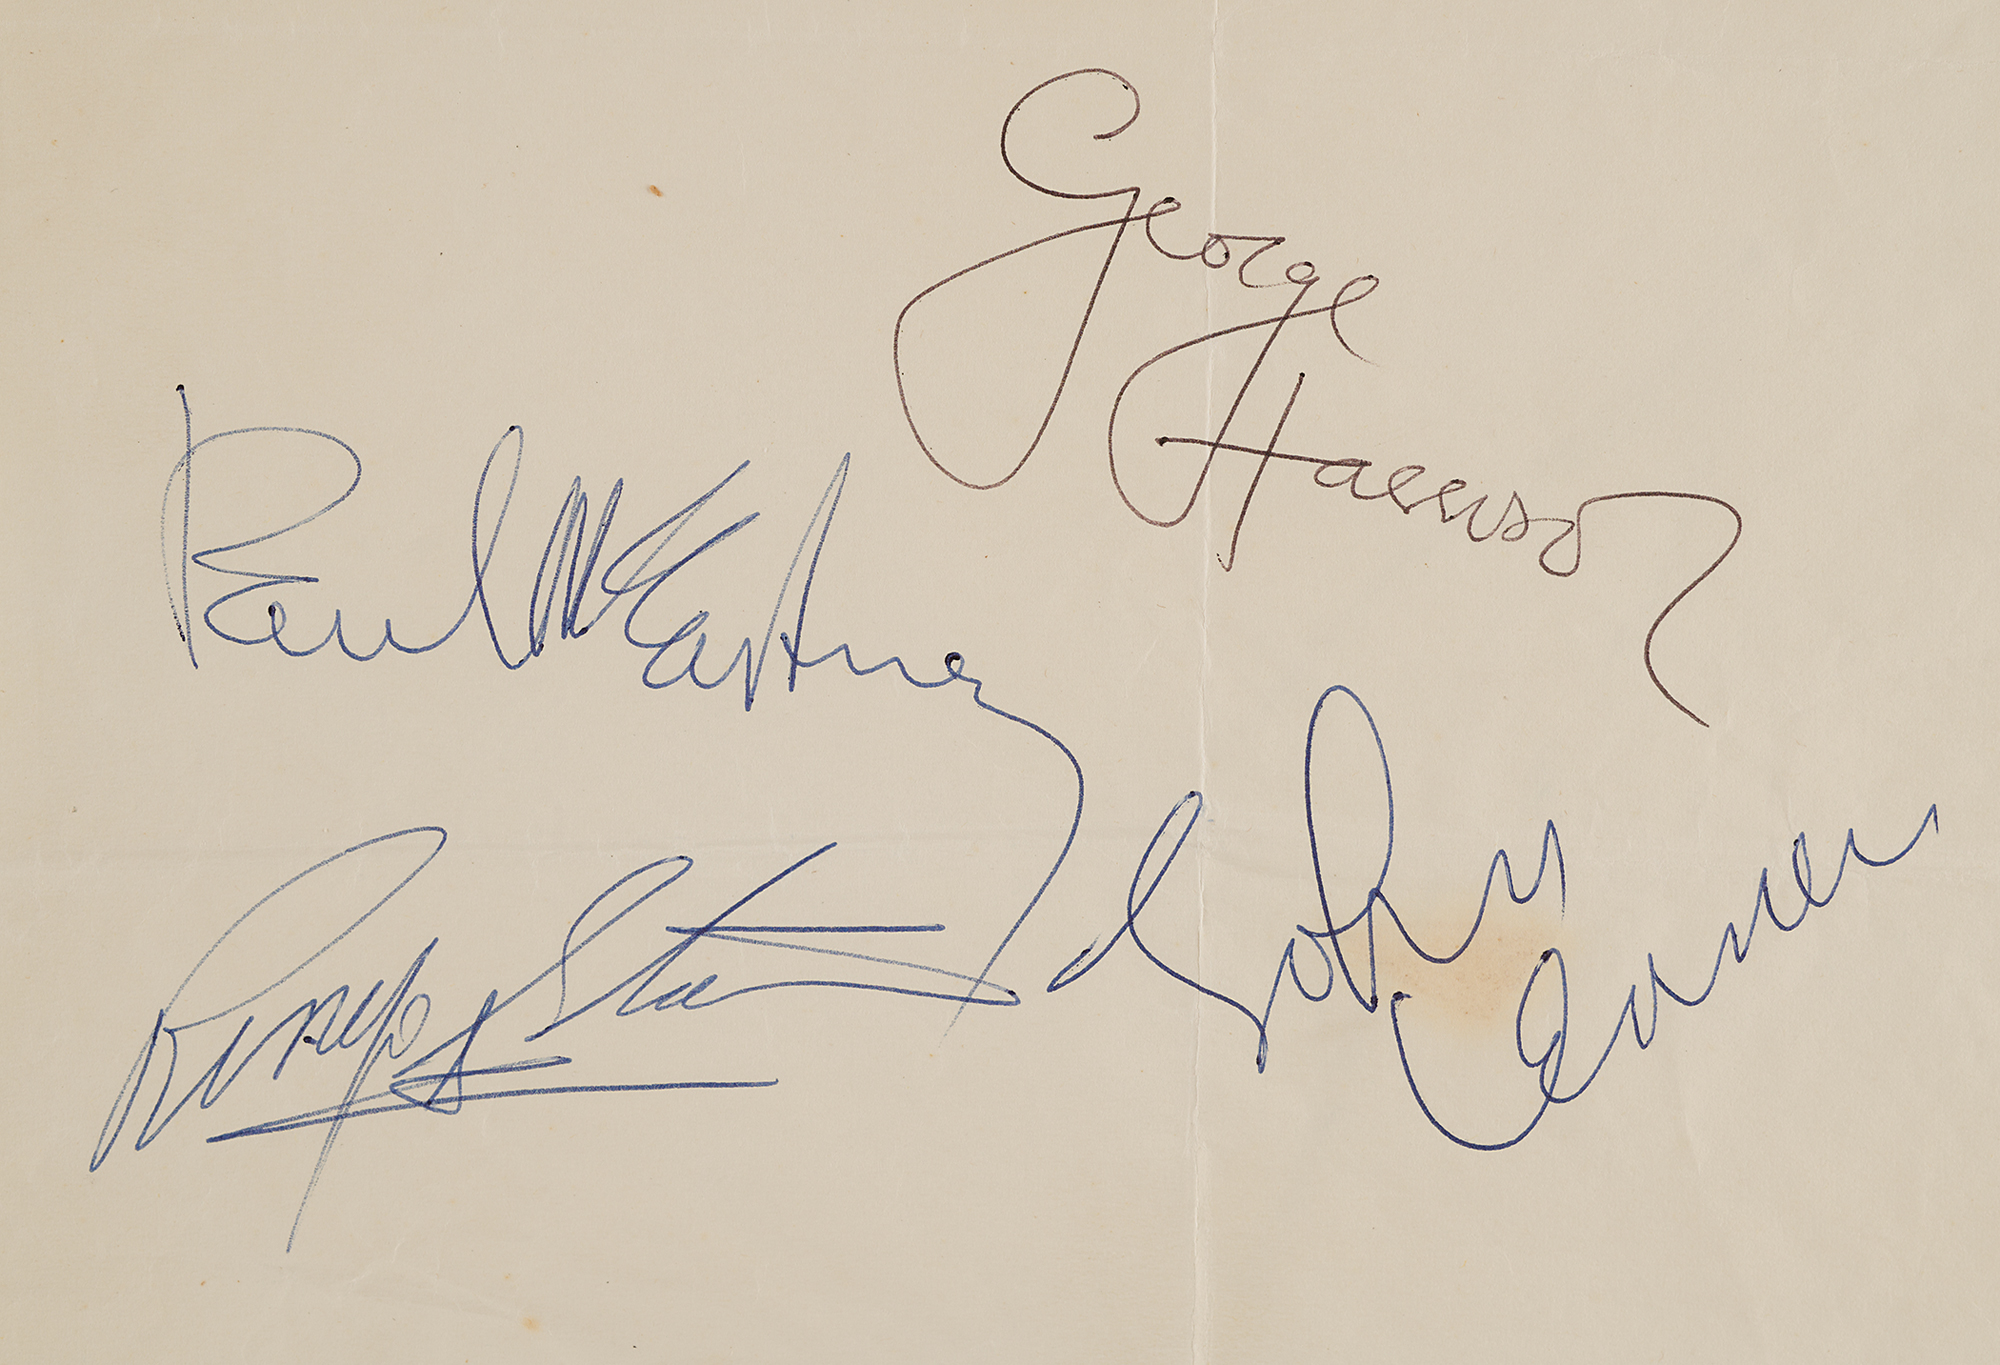 George
Harrison
Paul McCartney
Ringo Starr
John Lennon